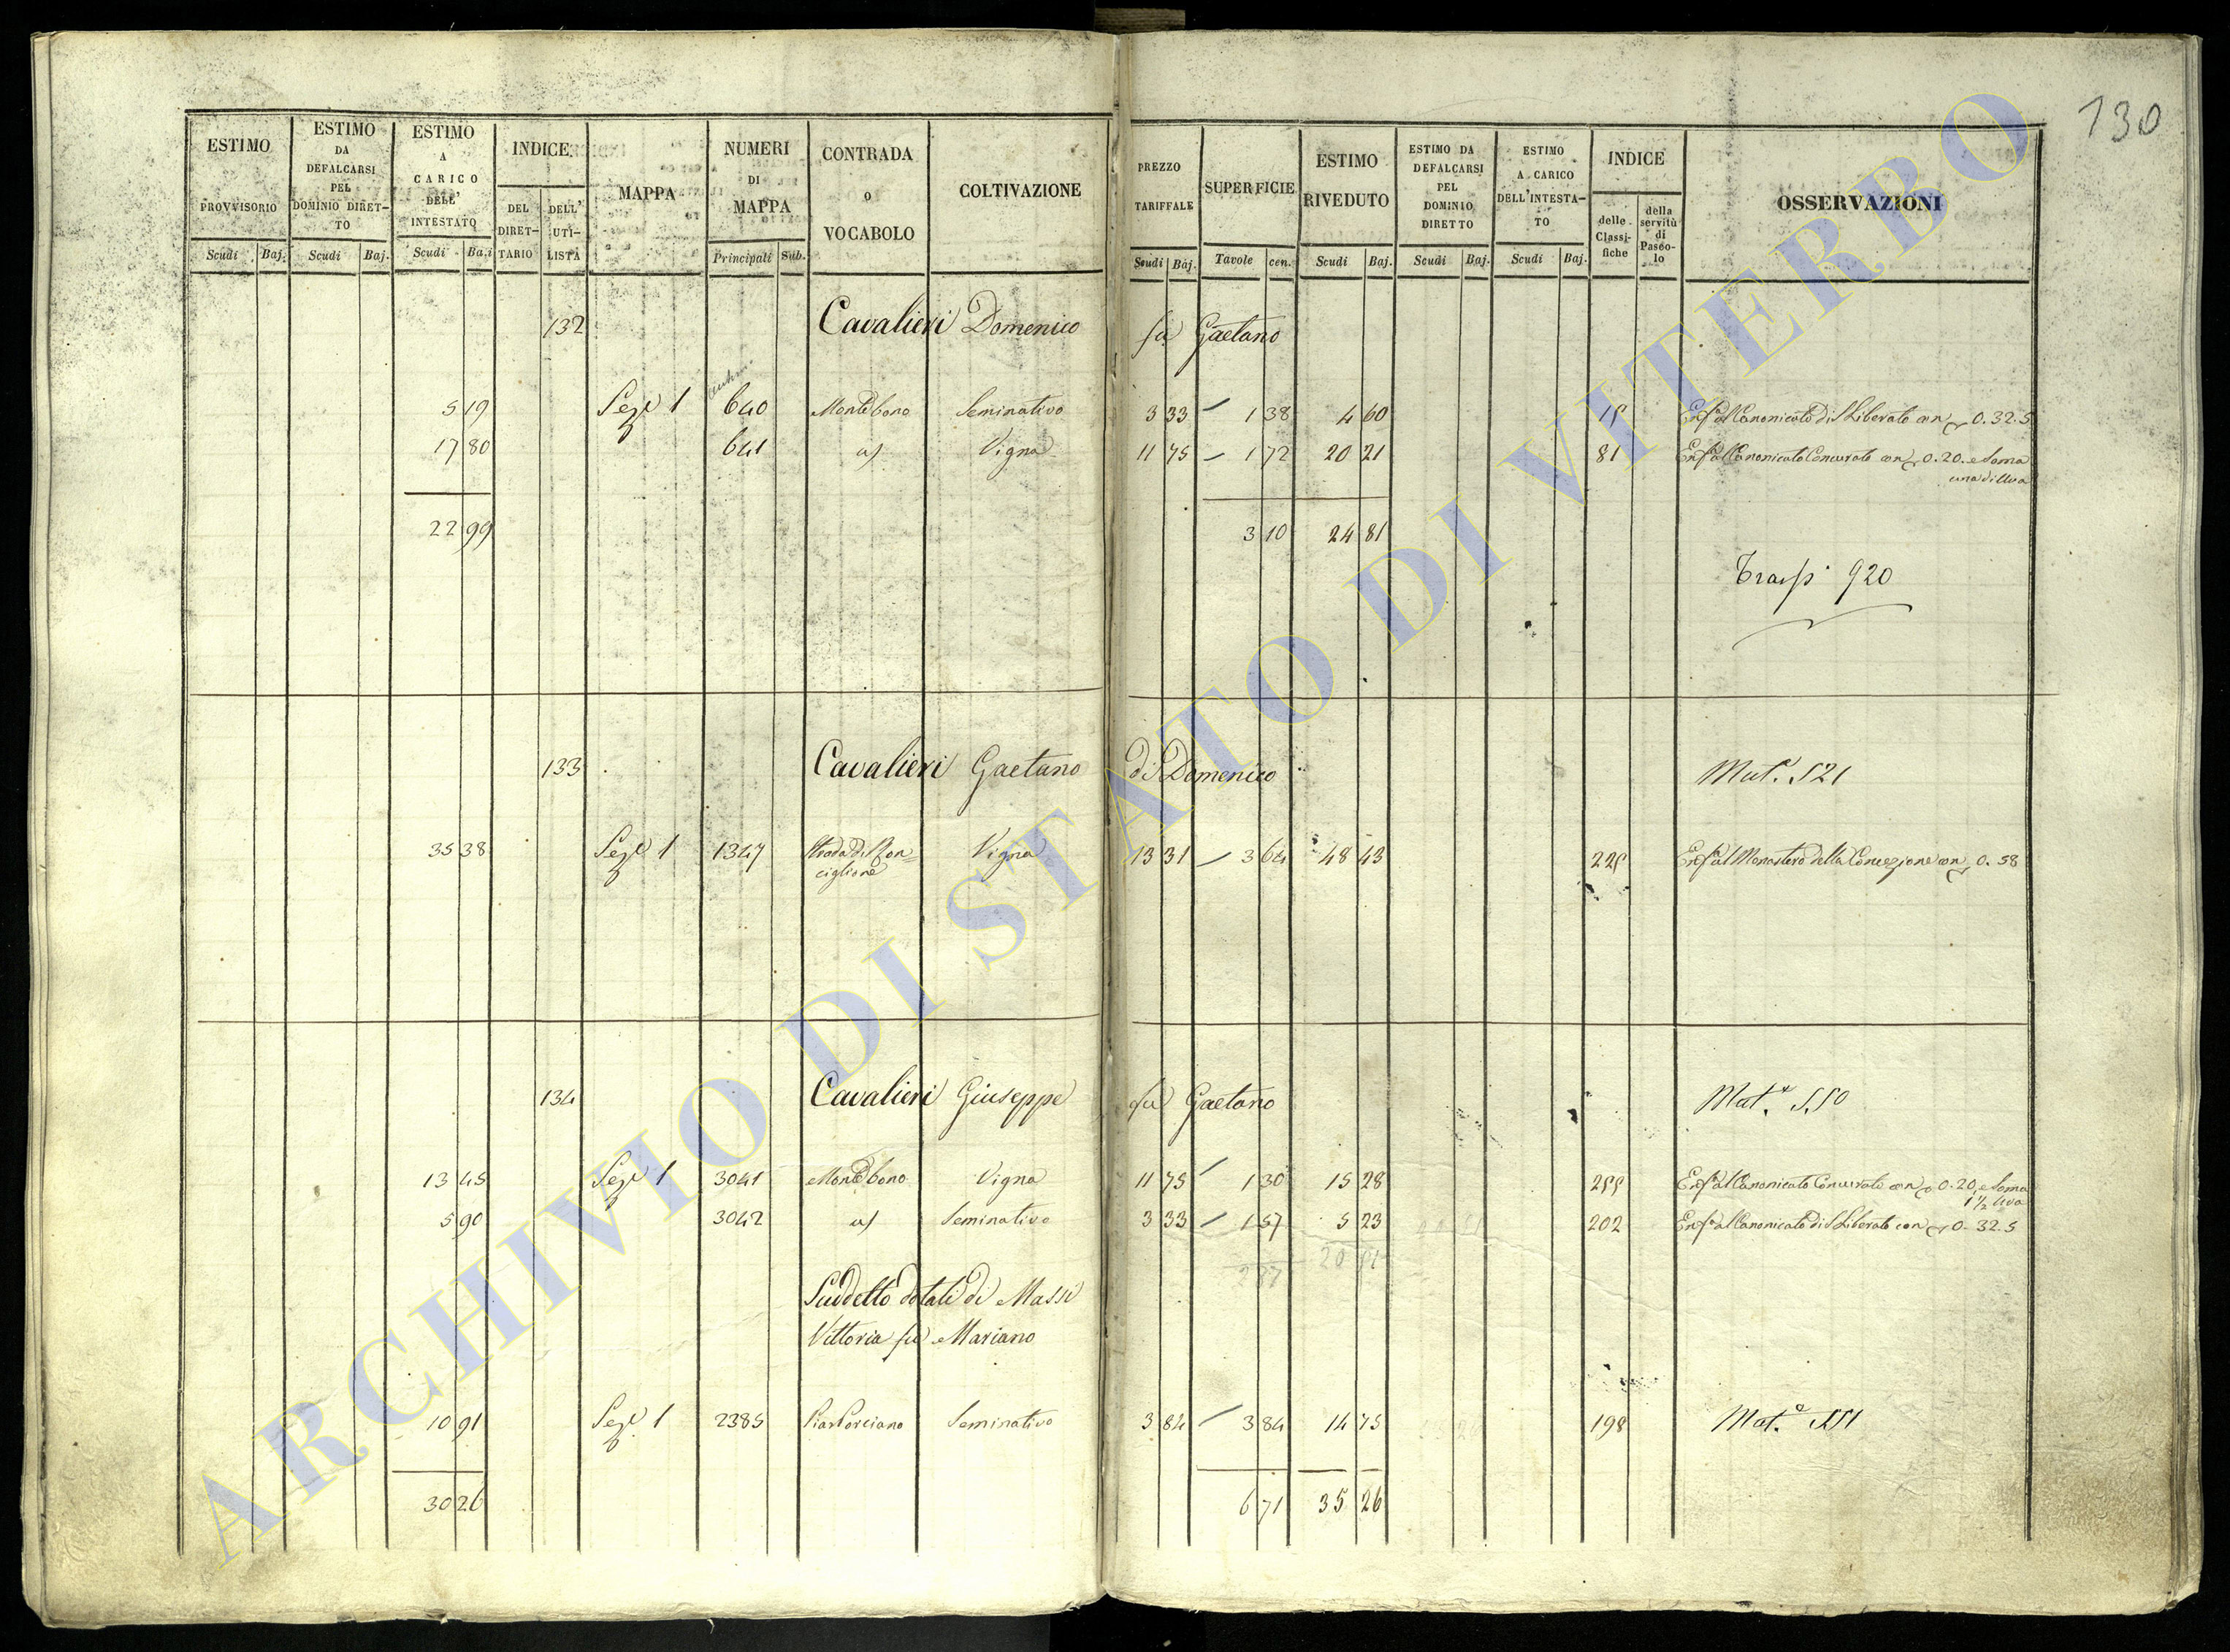 130
ESTIMO PROVVISORIO Scudi Baj.
ESTIMO DA DEFALCARSI PEL DOMINIO DIRETTO Scudi Baj.
ESTIMO A CARICO DELL' INTESTATO Scudi Baj.
INDICE DEL DIRETTARIO DELL' UTILISTA
MAPPA
NUMERI DI MAPPA Principali Sub.
CONTRADA o VOCABOLO
COLTIVAZIONE
PREZZO TARIFFALE Scudi Baj.
SUPERFICIE Tavole cen.
ESTIMO RIVEDUTO Scudi Baj.
ESTIMO DA DEFALCARSI PEL DOMINIO DIRETTO Scudi Baj.
ESTIMO A CARICO DELL'INTESTATO Scudi Baj.
INDICE delle Classifiche della servitù di Pascolo
OSSERVAZIONI
132 Cavalieri Domenico fu Gaetano
5 19 Sez.e 1 640 Montebono Seminativo 3 33 1 38 4 60 Enf.a al Canonicato di S Liberato con 0.32.5
17 80 641 a) Vigna 11 75 1 72 20 21 81 Enf.a al Canonicato Concurato con 0.20. e Soma
una di Uva
22 99 3 10 24 81
920
133 Cavalieri Gaetano di Domenico Mat. 521
35 38 Sez.e 1 1347 Strada di Ron=
ciglione Vigna 13 31 3 64 48 43 Enf.a al Monastero della Concezione con 0.58
134 Cavalieri Giuseppe fu Gaetano Mat.
13 45 Sez.e 1 3041 Montebono Vigna 11 75 1 30 15 28 Enf.a al Canonicato Concurato con 0.20 e Soma
1 1/2 Uva
5 90 3042 a) Seminativo 3 33 1 57 5 23 202 Enf.a al Canonicato di S Liberato con 0.32.5
2 87 20 51
Suddetto dotali di Massi
Vittoria fu Mariano
10 91 Sez.e 1 2385 Seminativo 3 84 3 84 14 75 198 Mat.
30 26 6 71 35 26
ARCHIVIO DI STATO DI VITERBO